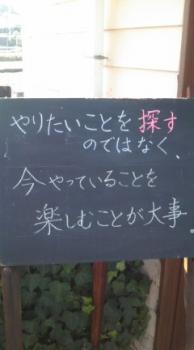 やりたいことを探す
のではなく、
今やっていることを
楽しむことが大事